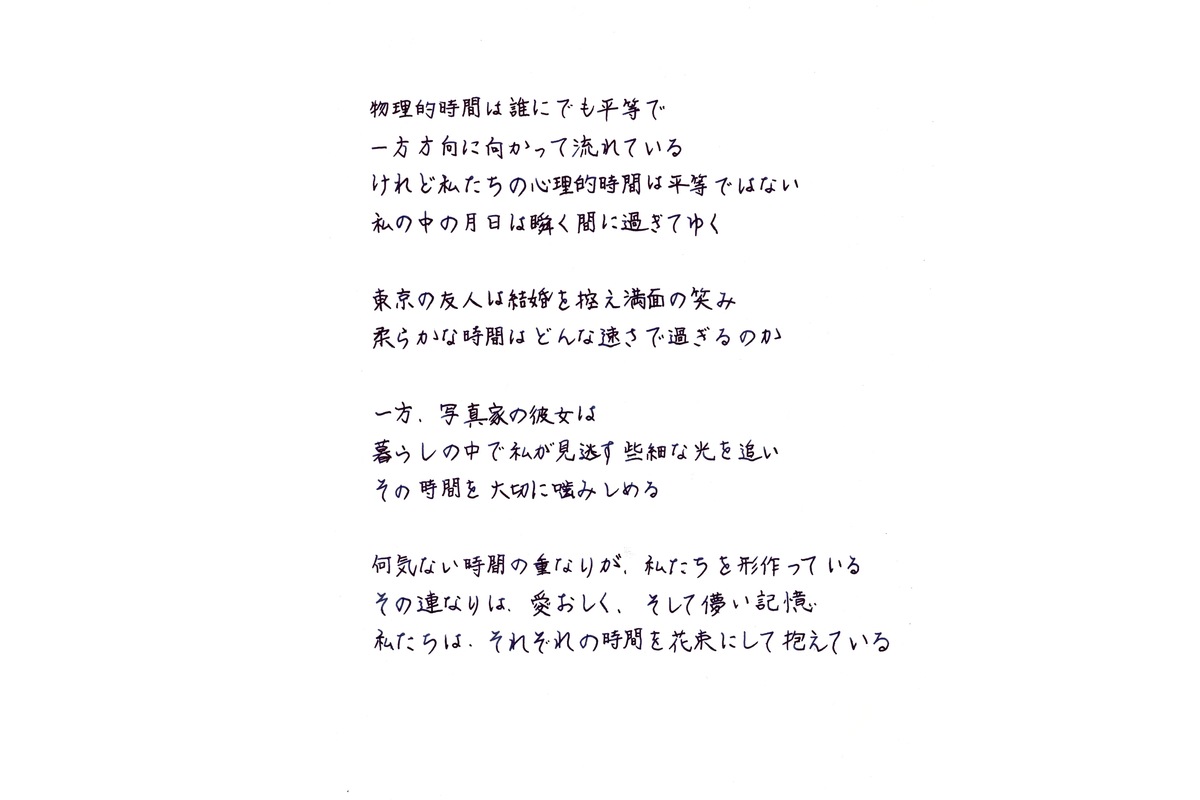 物理的時間は誰にでも平等で
一方方向に向かって流れている
けれど私たちの心理的時間は平等ではない
私の中の月日は瞬く間に過ぎてゆく
東京の友人は結婚を控え満面の笑み
柔らかな時間はどんな速さで過ぎるのか
一方、写真家の彼女は
暮らしの中で私が見逃す些細な光を追い
その時間を大切に噛みしめる
何気ない時間の重なりが、私たちを形作っている
その連なりは、愛おしく、そして儚い記憶
私たちは、それぞれの時間を花束にして抱えている